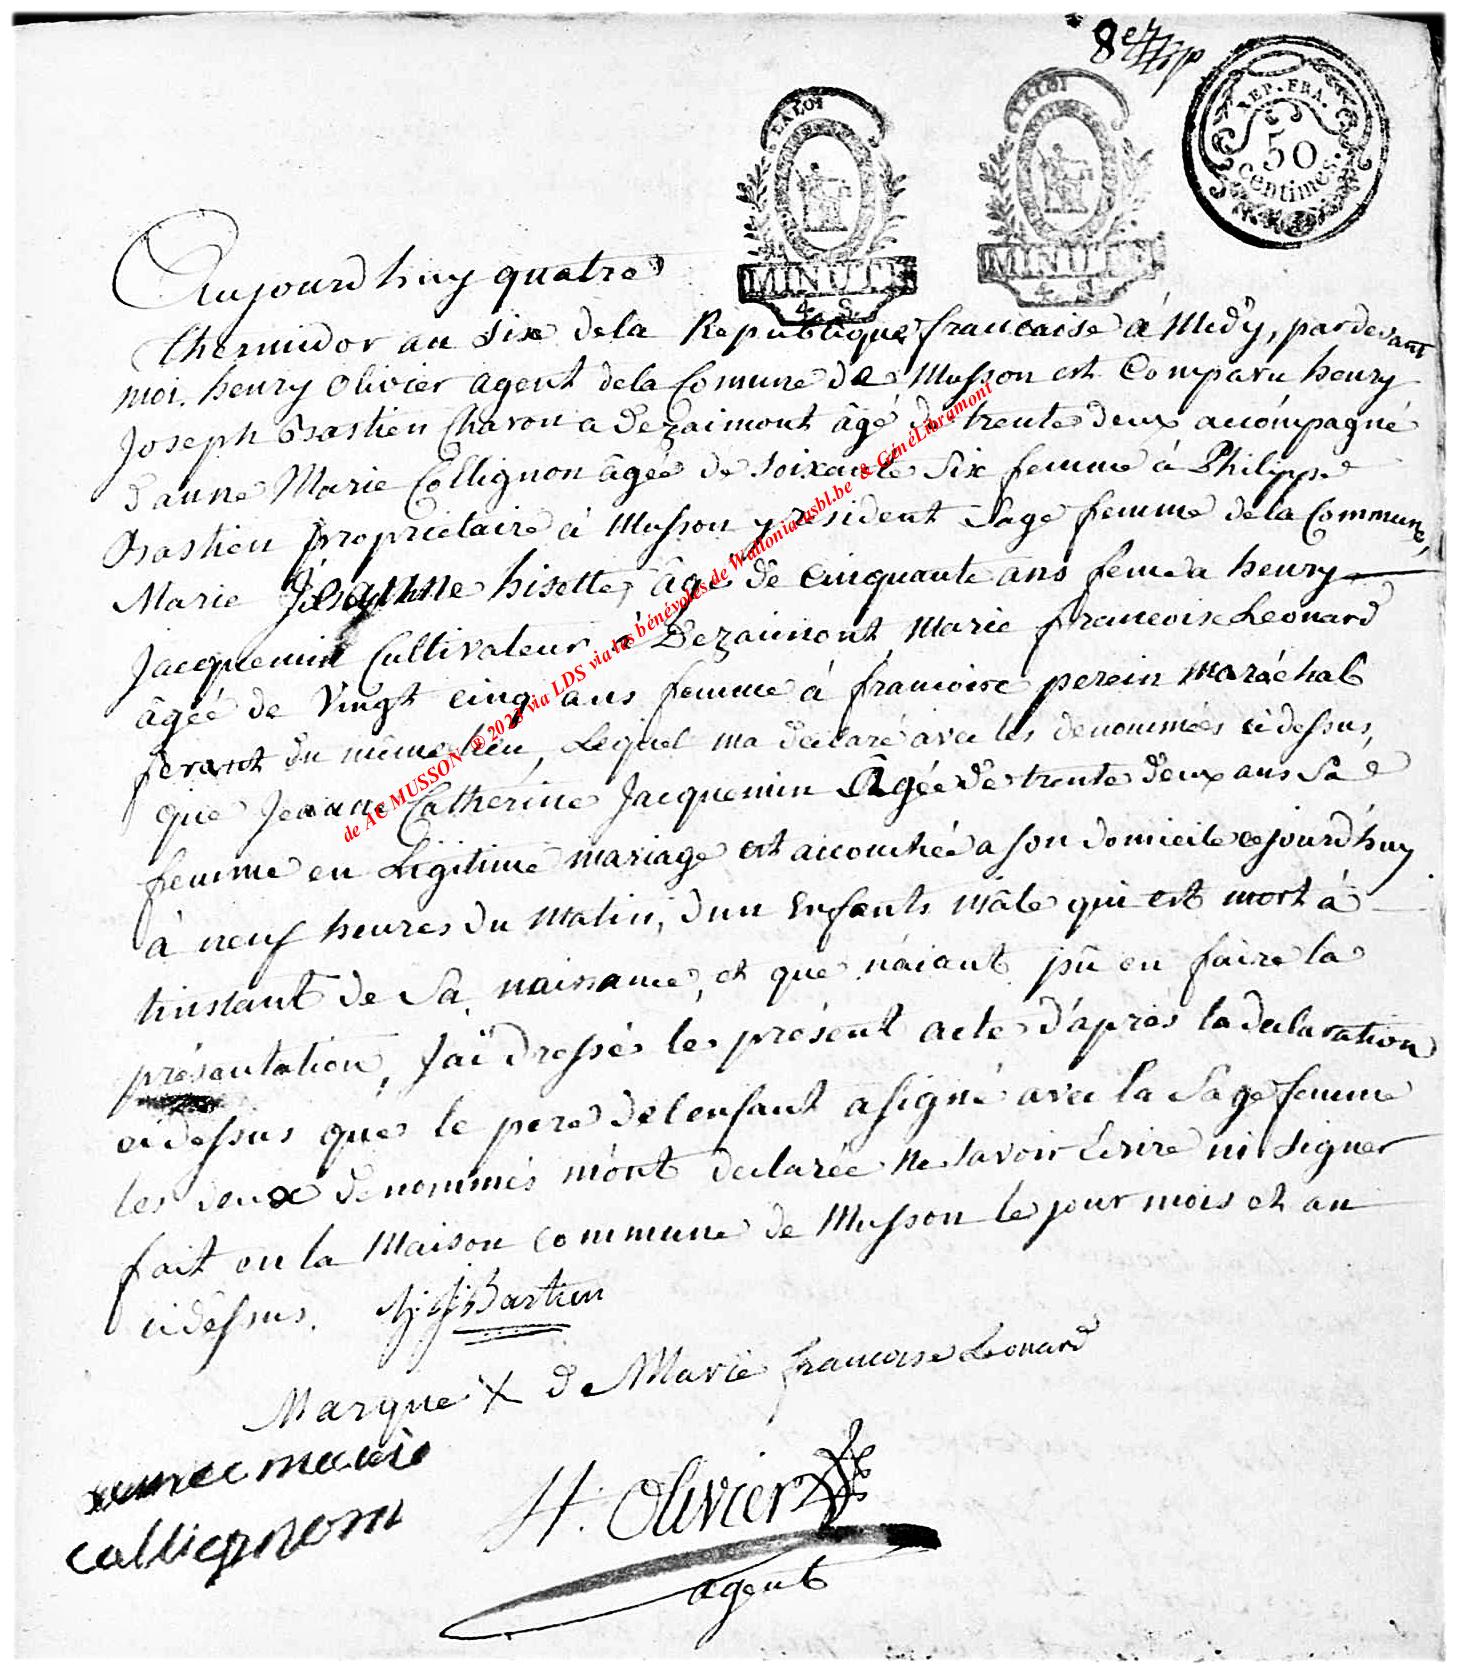 8e
LA LOI
MINUTE
4. S.
LA LOI
MINUTE
4. S.
REP. FRA.
50
centimes.
Aujourdhuy quatre
thermidor an six dela Republique francaise à Midy, pardevant
moi. henry olivier agent dela Comune de Musson est Comparu henry
Joseph Bastien Charon a Dezaimont âgé de trente deux accómpagné
danne Marie Collignon âgée de soixante Six femme à Philippe
Bastien propriétaire à Musson y résident Sage femme dela Commune,
Marie Josephine hisette, âgé de cinquante ans feme a henry
Jacquemin Cultivateur à Dezaimont Marie francoise Leonard
âgée de Vingt cinq ans femme à francoise perein maréchal
ferant du même lieu, Lequel ma declaré avec les denommées cidessus,
que Jeanne Catherine Jacquemin Agée de trente deux ans Sa
femme en Légitime mariage est accouchée a son domicile cejourd'huy
à neuf heures du Matin, dun Enfants mâle qui est mort à
linstant de Sa naissance, et que náiant pû en faire la
présentation, J'ai dressé le présent acte d'après la declaration
cidessus que le pere delenfant a signé avec la Sage femme
les deux denommés m'ont declarée ne savoir écrire ni signer
fait en la Maison commune de Musson le jour mois et an
cidessus. h. j. Bastien
Marque X de Marie francoise Leonard
annee marie
collignon
H. Olivier
agent
de AC MUSSON ® 2023 via LDS via les bénévoles de Wallonia-asbl.be & GénéLibramont